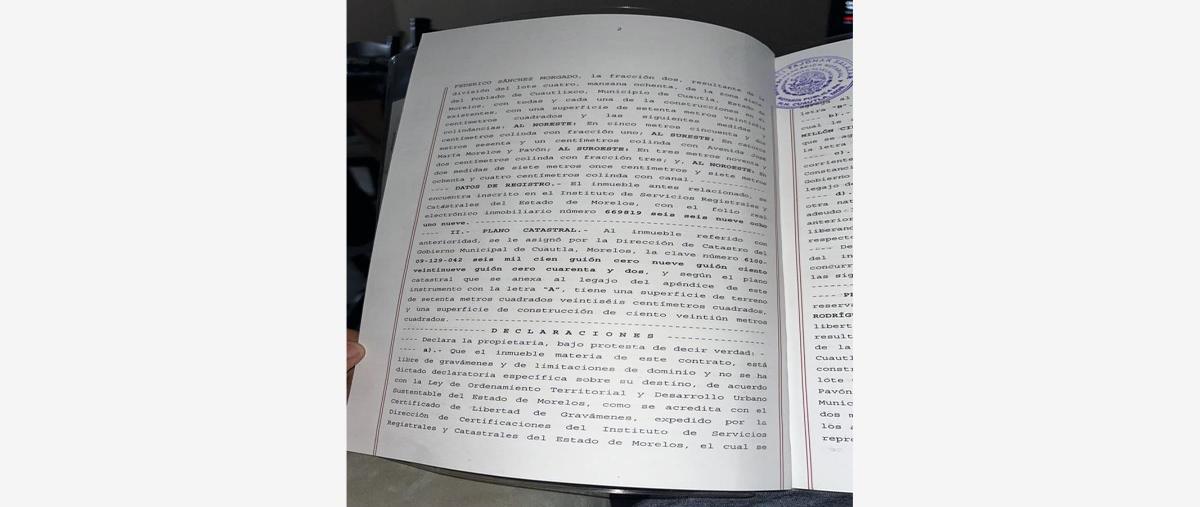 2
FEDERICO SÁNCHEZ MORGADO, la fracción dos, resultante de la
división del lote cuatro, manzana ochenta, de la zona siete,
del Poblado de Cuautlixco, Municipio de Cuautla, Estado de
Morelos, con todas y cada una de la construcciones en él
existentes, con una superficie de setenta metros veintiséis
centímetros cuadrados y las siguientes medidas y
colindancias: AL NORESTE: En cinco metros cincuenta y dos
centímetros colinda con fracción uno; AL SURESTE: En catorce
metros sesenta y un centímetros colinda con Avenida José
María Morelos y Pavón; AL SUROESTE: En tres metros noventa y
dos centímetros colinda con fracción tres; y, AL NOROESTE: En
dos medidas de siete metros once centímetros y siete metros
ochenta y cuatro centímetros colinda con canal. --------------
---- DATOS DE REGISTRO.- El inmueble antes relacionado, se
encuentra inscrito en el Instituto de Servicios Registrales y
Catastrales del Estado de Morelos, con el folio real
electrónico inmobiliario número 669819 seis seis nueve ocho
uno nueve. --------------------------------------------------
---- II.- PLANO CATASTRAL.- Al inmueble referido con
anterioridad, se le asignó por la Dirección de Catastro del
Gobierno Municipal de Cuautla, Morelos, la clave número 6100-
09-129-042 seis mil cien guión cero nueve guión ciento
veintinueve guión cero cuarenta y dos, y según el plano
catastral que se anexa al legajo del apéndice de este
instrumento con la letra "A", tiene una superficie de terreno
de setenta metros cuadrados veintiséis centímetros cuadrados,
y una superficie de construcción de ciento veintiún metros
cuadrados. --------------------------------------------------
---------------- D E C L A R A C I O N E S ----------------
---- Declara la propietaria, bajo protesta de decir verdad: -
---- a).- Que el inmueble materia de este contrato, está
libre de gravámenes y de limitaciones de dominio y no se ha
dictado declaratoria específica sobre su destino, de acuerdo
con la Ley de Ordenamiento Territorial y Desarrollo Urbano
Sustentable del Estado de Morelos, como se acredita con el
Certificado de Libertad de Gravámenes, expedido por la
Dirección de Certificaciones del Instituto de Servicios
Registrales y Catastrales del Estado de Morelos, el cual se
letra "B"
---- b).-
cual le
MILLÓN CI
que se ag
la letra
---- c).
corrient
Constanci
Gobierno
legajo de
---- d).
otra nat
adeudo
anterior
liberand
respecto
---- De
del in
concurr
las sig
--------
---- PR
reserva
RODRÍG
libert
result
de la
Cuautl
constr
lote
Pavón
Munic
dos m
los a
repre